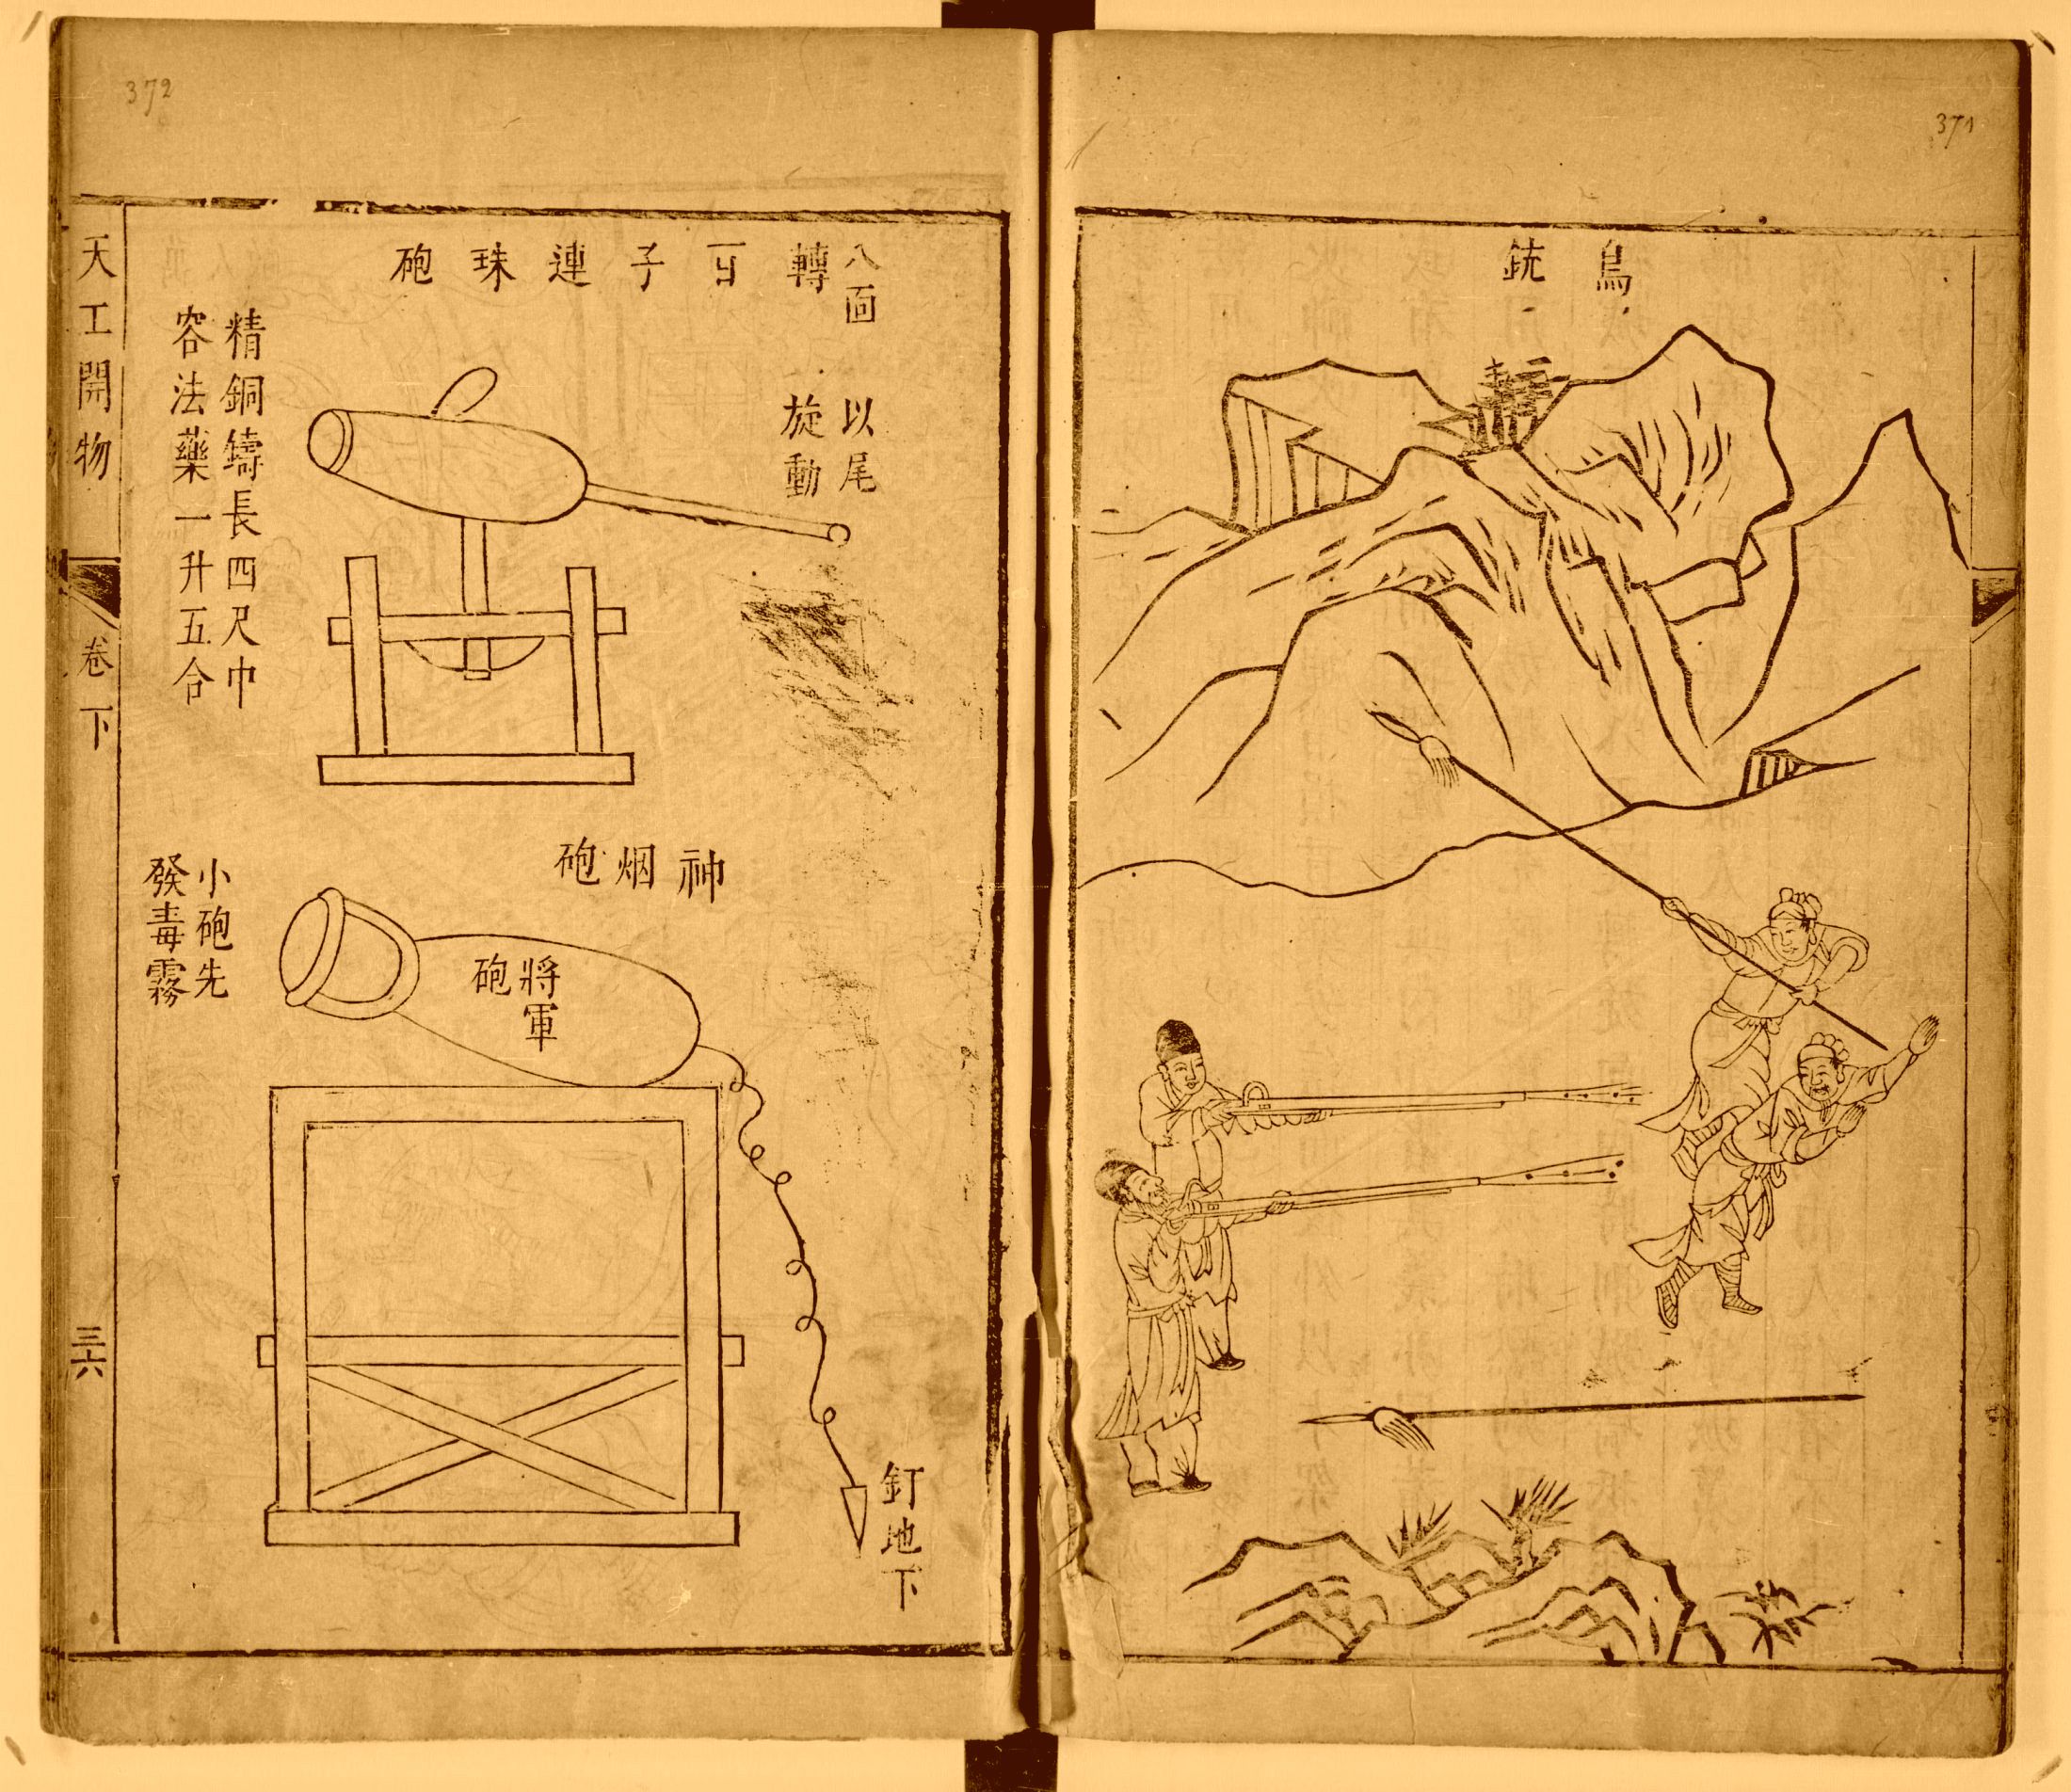 371
鳥銃
372
八面轉百子連珠砲
以尾
旋動
精銅鑄長四尺中
容法藥一升五合
神烟砲
將軍
砲
小砲先
發毒霧
釘地下
天工開物
卷下
三六